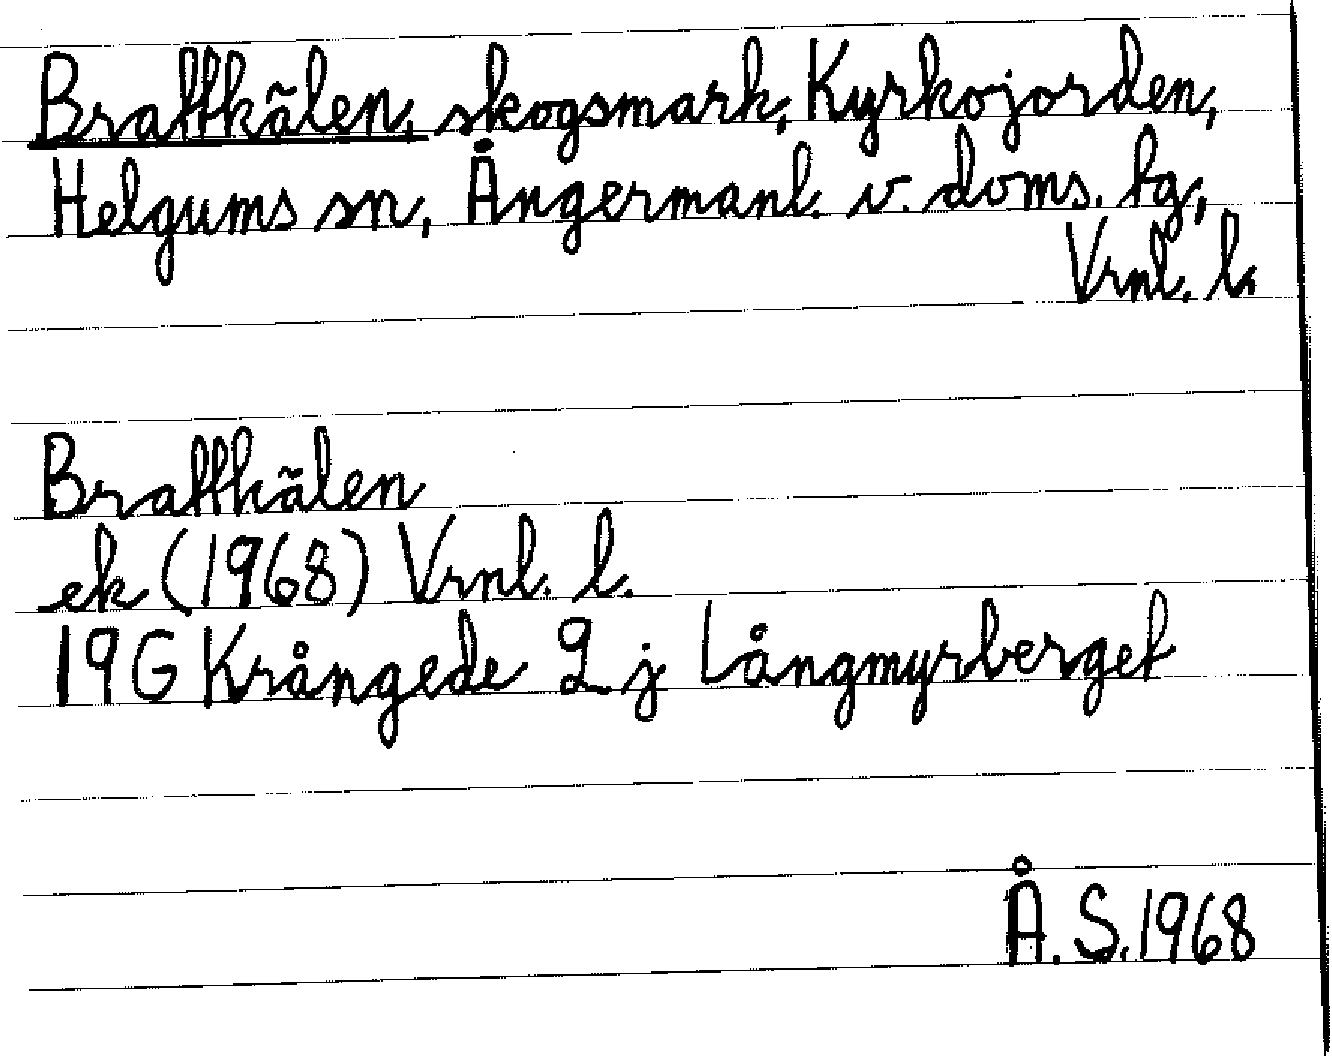 Brattkälen, skogsmark, Kyrkojorden,
Helgums sn, Ångermanl. v. doms. tg,
Vrnl. l.
Brattkälen
ek (1968) Vrnl. l.
19G Krångede 2 j Långmyrberget
Å. S. 1968